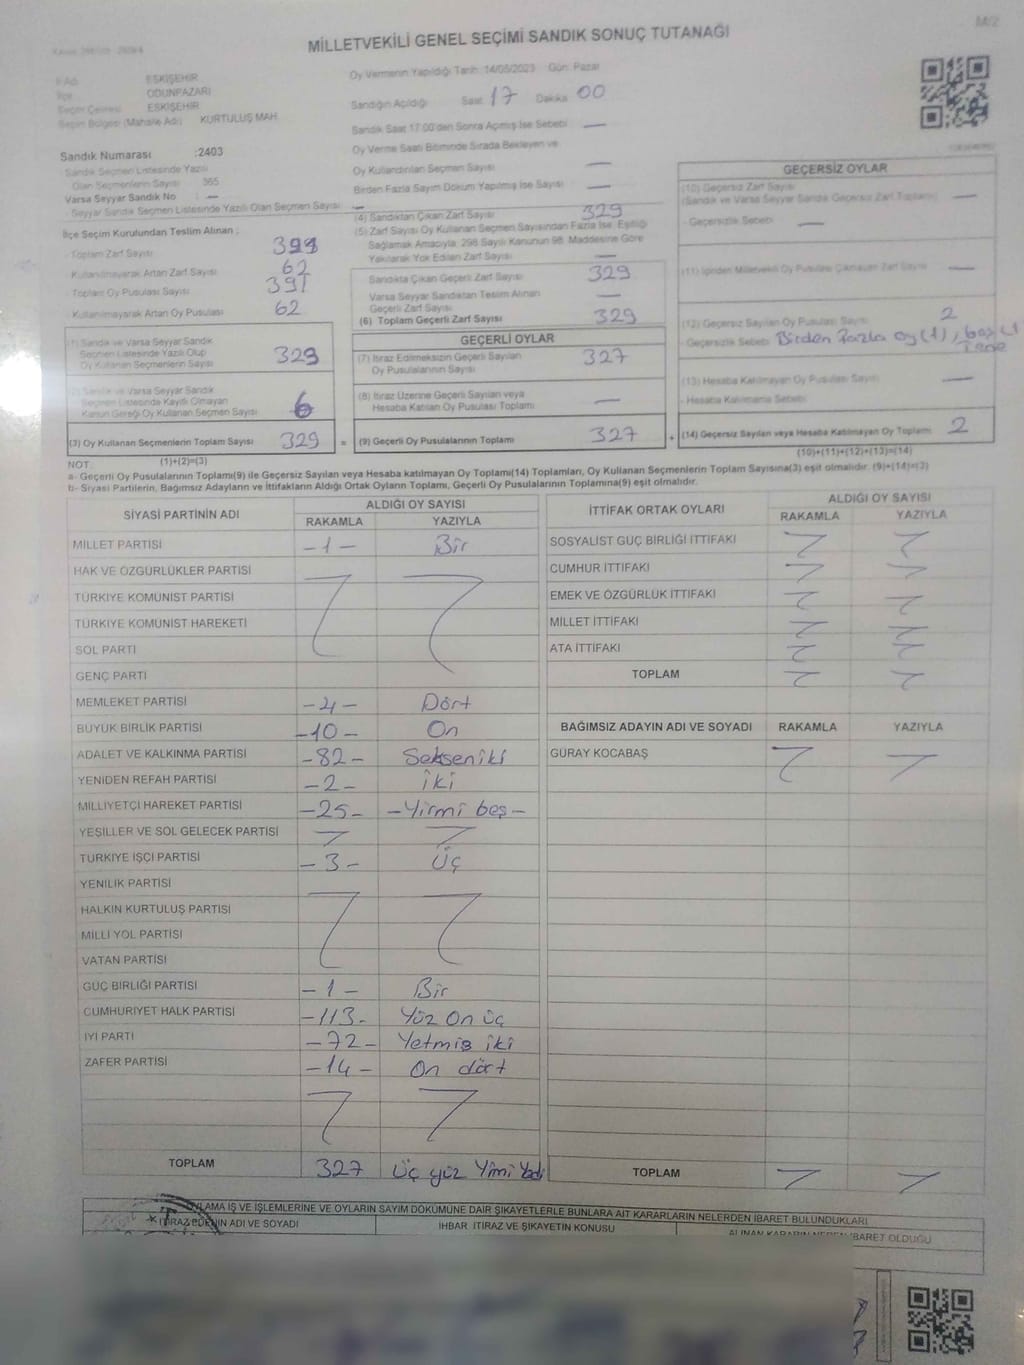 M/2
MİLLETVEKİLİ GENEL SEÇİMİ SANDIK SONUÇ TUTANAĞI
İl Adı : ESKİŞEHİR
İlçe : ODUNPAZARI
Seçim Çevresi : ESKİŞEHİR
Seçim Bölgesi (Mahalle Adı) KURTULUŞ MAH.
Sandık Numarası :2403
Sandık Seçmen Listesinde Yazılı
Olan Seçmenlerin Sayısı 365
Varsa Seyyar Sandık No : —
- Seyyar Sandık Seçmen Listesinde Yazılı Olan Seçmen Sayısı : —
Oy Vermenin Yapıldığı Tarih: 14/05/2023 Gün: Pazar
Sandığın Açıldığı Saat 17 Dakika 00
Sandık Saat 17:00'den Sonra Açılmış İse Sebebi —
Oy Verme Saati Bitiminde Sırada Bekleyen ve
Oy Kullandırılan Seçmen Sayısı —
Birden Fazla Sayım Döküm Yapılmış İse Sayısı —
İlçe Seçim Kurulundan Teslim Alınan ;
- Toplam Zarf Sayısı 399
- Kullanılmayarak Artan Zarf Sayısı 62
- Toplam Oy Pusulası Sayısı 391
- Kullanılmayarak Artan Oy Pusulası 62
(1) Sandık ve Varsa Seyyar Sandık
Seçmen Listesinde Yazılı Olup
Oy Kullanan Seçmenlerin Sayısı 329
(2) Sandık ve Varsa Seyyar Sandık
Seçmen Listesinde Kayıtlı Olmayan
Kanun Gereği Oy Kullanan Seçmen Sayısı
(3) Oy Kullanan Seçmenlerin Toplam Sayısı 329 =
(1)+(2)=(3)
(4) Sandıktan Çıkan Zarf Sayısı 329
(5) Zarf Sayısı Oy Kullanan Seçmen Sayısından Fazla İse, Eşitliği
Sağlamak Amacıyla; 298 Sayılı Kanunun 98. Maddesine Göre
Yakılarak Yok Edilen Zarf Sayısı —
Sandıkta Çıkan Geçerli Zarf Sayısı 329
Varsa Seyyar Sandıktan Teslim Alınan
Geçerli Zarf Sayısı —
(6) Toplam Geçerli Zarf Sayısı 329
GEÇERLİ OYLAR
(7) İtiraz Edilmeksizin Geçerli Sayılan
Oy Pusulalarının Sayısı 327
(8) İtiraz Üzerine Geçerli Sayılan veya
Hesaba Katılan Oy Pusulası Toplamı —
(9) Geçerli Oy Pusulalarının Toplamı 327 +
GEÇERSİZ OYLAR
(10) Geçersiz Zarf Sayısı
(Sandık ve Varsa Seyyar Sandık Geçersiz Zarf Toplamı) —
- Geçersizlik Sebebi —
(11) İçinden Milletvekili Oy Pusulası Çıkmayan Zarf Sayısı —
(12) Geçersiz Sayılan Oy Pusulası Sayısı 2
- Geçersizlik Sebebi Birden Fazla oy (1),
(13) Hesaba Katılmayan Oy Pusulası Sayısı —
- Hesaba Katılmama Sebebi
(14) Geçersiz Sayılan veya Hesaba Katılmayan Oy Toplamı 2
(10)+(11)+(12)+(13)=(14)
NOT:
a- Geçerli Oy Pusulalarının Toplamı(9) ile Geçersiz Sayılan veya Hesaba katılmayan Oy Toplamı(14) Toplamları, Oy Kullanan Seçmenlerin Toplam Sayısına(3) eşit olmalıdır. (9)+(14)=(3)
b- Siyasi Partilerin, Bağımsız Adayların ve İttifakların Aldığı Ortak Oyların Toplamı, Geçerli Oy Pusulalarının Toplamına(9) eşit olmalıdır.
SİYASİ PARTİNİN ADI ALDIĞI OY SAYISI
RAKAMLA YAZIYLA
MİLLET PARTİSİ -1- Bir
HAK VE ÖZGÜRLÜKLER PARTİSİ
TÜRKİYE KOMÜNİST PARTİSİ
TÜRKİYE KOMÜNİST HAREKETİ
SOL PARTİ
GENÇ PARTİ
MEMLEKET PARTİSİ -4- Dört
BÜYÜK BİRLİK PARTİSİ -10- On
ADALET VE KALKINMA PARTİSİ -82- Sekseniki
YENİDEN REFAH PARTİSİ -2- iki
MİLLİYETÇİ HAREKET PARTİSİ -25- -Yirmi beş-
YEŞİLLER VE SOL GELECEK PARTİSİ
TÜRKİYE İŞÇİ PARTİSİ -3- Üç
YENİLİK PARTİSİ
HALKIN KURTULUŞ PARTİSİ
MİLLİ YOL PARTİSİ
VATAN PARTİSİ
GÜÇ BİRLİĞİ PARTİSİ -1- Bir
CUMHURİYET HALK PARTİSİ -113- Yüz On üç
İYİ PARTİ -72- Yetmiş iki
ZAFER PARTİSİ -14- On dört
TOPLAM 327 Üç yüz Yirmi Yedi
İTTİFAK ORTAK OYLARI ALDIĞI OY SAYISI
RAKAMLA YAZIYLA
SOSYALİST GÜÇ BİRLİĞİ İTTİFAKI
CUMHUR İTTİFAKI
EMEK VE ÖZGÜRLÜK İTTİFAKI
MİLLET İTTİFAKI
ATA İTTİFAKI
TOPLAM
BAĞIMSIZ ADAYIN ADI VE SOYADI RAKAMLA YAZIYLA
GÜRAY KOCABAŞ
TOPLAM
OYLAMA İŞ VE İŞLEMLERİNE VE OYLARIN SAYIM DÖKÜMÜNE DAİR ŞİKAYETLERLE BUNLARA AİT KARARLARIN NELERDEN İBARET BULUNDUKLARI
İTİRAZ EDENİN ADI VE SOYADI İHBAR İTİRAZ VE ŞİKAYETİN KONUSU ALINAN KARARIN NEDEN İBARET OLDUĞU